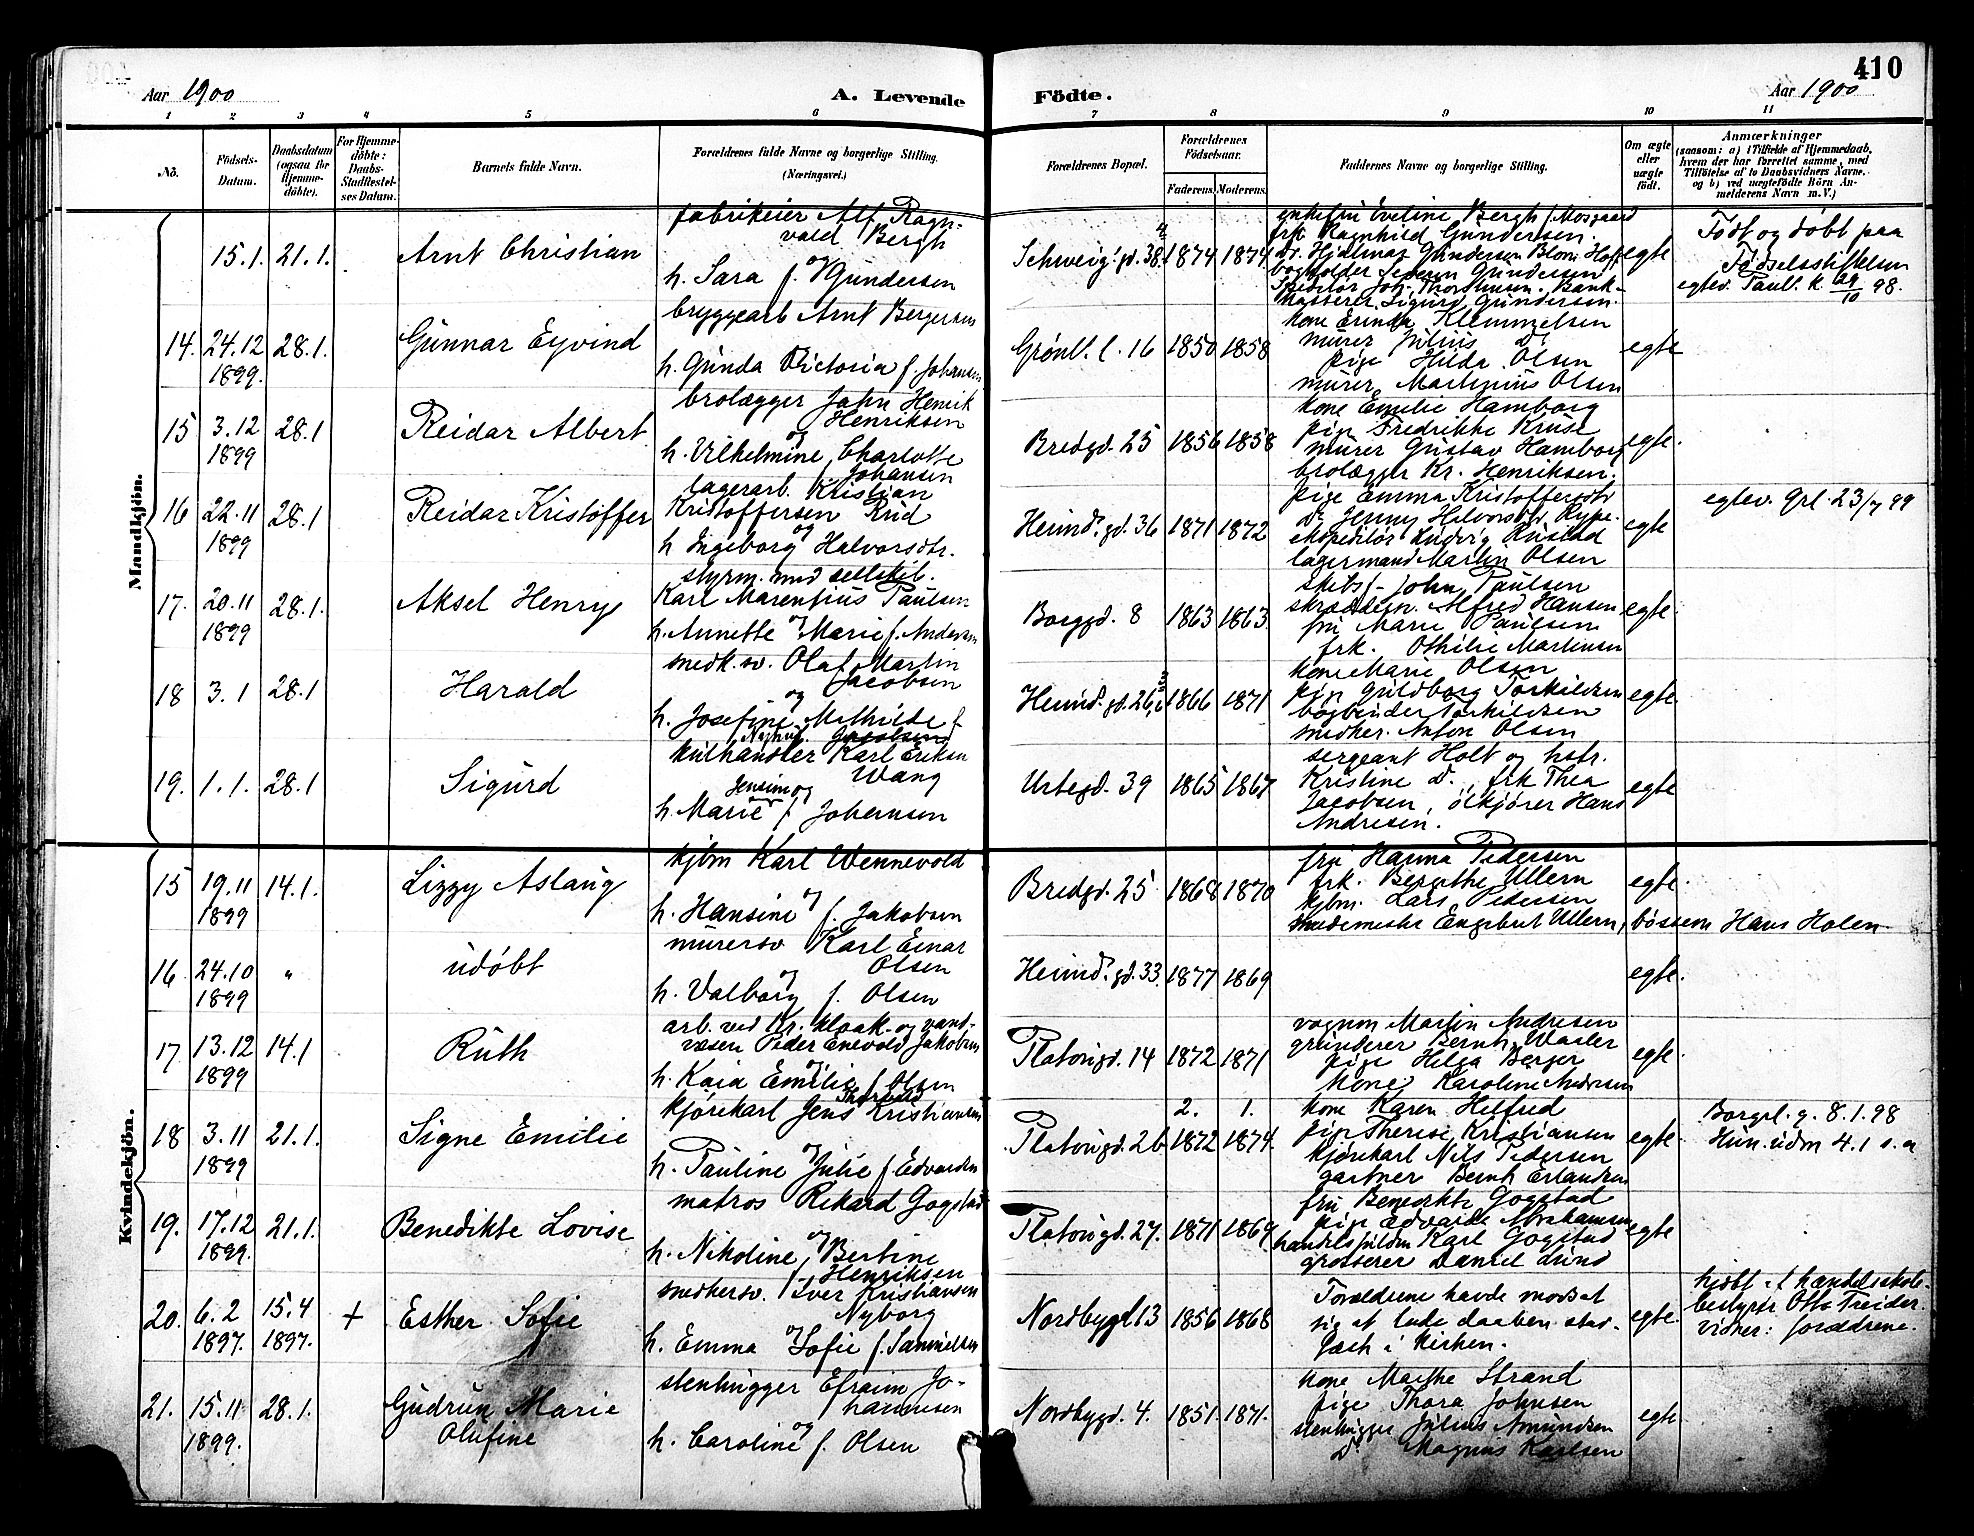 410
Aar 1900
A. Levende
Födte.
Aar 1900
1 2 3 4 5 6 7 8 9 10 11
No.
Födsels-
Datum.
Daabsdatum
(ogsaa for
Hjemme-
döbte).
For Hjemme-
döbte:
Daabs-
Stadfæstel-
ses Datum.
Barnets fulde Navn.
Forældrenes fulde Navne og borgerlige Stilling.
(Næringsvei.)
Forældrenes Bopæl.
Forældrenes
Födselsaar.
Faderens. Moderens.
Faddernes Navne og borgerlige Stilling.
Om ægte
eller
uægte
födt.
Anmærkninger
(saasom: a) i Tilfælde af Hjemmedaab,
hvem der har forrettet samme, med
Tilföielse af to Daabsvidners Navne,
og b) ved uægtefödte Börn An-
melderens Navn m. V.)
Mandkjön.
15.1. 21.1.
Arnt Christian
fabrikeier Alf Ragn-
vald Bergh
og
h. Sara f. Gundersen
Schweig.gd. 38
1874 1874
enkefru Eveline Bergh f. Mosgaard
frk. Ragnhild Gundersen
Dr. Hjalmar Gundersen
bogholder Severin Gundersen
kasserer Sigurd Gundersen.
egte
Født og døbt paa
Fødselsstiftelsen
egtev. Paul. k. 29/10 98.
14. 24.12
1899.
28.1.
Gunnar Eyvind
bryggearb Arnt Bergersen
h. Gunda Victoria f. Johansen
Grønl. l. 16
1850 1858
kone Erinda Klemmetsen
murer Julius Do
pige Hilda Olsen
murer Martinius Olsen
egte
15 3.12
1899
28.1
Reidar Albert
brolægger John Henrik
Henriksen
og
h. Vilhelmine Charlotte
f. Johansen
Bredgd. 25
1856 1858
kone Emilie Hamborg
pige Fredrikke Kruse
murer Gustav Hamborg
brolægger Kr. Henriksen.
egte.
16 22.11
1899
28.1
Reidar Kristoffer
lagerarb. Kristian
Kristoffersen Rud
og
h Ingeborg Halvorsdtr.
Heimd. gd. 36
1871 1872
pige Emma Kristoffersdtr
Do Jenny Halvorsdtr. Rype.
ekspeditør Ludvig Rustad
lagermand Martin Olsen
egte
egtev. Grl. 23/7 99
17. 20.11
1899
28.1.
Aksel Henry
styrm. med selskib.
Karl Marentius Paulsen
og
h. Annette Marie f. Andersen
Borggd. 8
1863 1863.
skibsf. John Paulsen
skrædderm. Alfred Hansen
fru Marie Paulsen
frk. Othilie Martinsen
egte.
18 3.1 28.1
Harald
snedk.sv. Olaf Martin
Jacobsen
og
h. Josefine Mathilde f.
Heimd. gd. 26
1866 1871
kone Marie Olsen
pige Guldborg Torkildsen
bogbinder Torkildsen
snedker. Anton Olsen
egte.
19. 1.1. 28.1
Sigurd
kulhandler Karl Eriksen
Wang
og
h. Marie Jensine f. Johansen
Urtegd. 39
1865 1867
sergeant Holt og hstr.
Kristine d., frk Thea
Jacobsen, ølkjører Hans
Andresen.
egte
Kvindekjön.
15 19.11
1899
14.1.
Lizzy Aslaug
kjbm Karl Wennevold
og
h. Hansine f. Jakobsen
Bredgd. 25
1868 1870
fru Hanna Pedersen
frk. Bergithe Ullern
kjbm. Lars Pedersen
smedemester Engebret Ullern, bøssem Hans Holen
egte.
16. 24.10
1899
"
udøbt
murersv Karl Einar
Olsen
og
h. Valborg f. Olsen
Heimd. gd. 33.
1877 1869
egte.
17 13.12
1899
14.1
Ruth
arb. ved Kr. kloak- og vand-
væsen Peder Enevold Jakobsen
h. Kaia Emilie f. Olsen
Platougd. 14
1872 1871
vognm Martin Andresen
grunderer Bernh. Wasler
pige Helga Berger
kone Karoline Andresen
egte.
18 3.11
1899
21.1.
Signe Emilie
kjørekarl Jens Kristiansen
og
h. Pauline Julie f. Edvardsen
Platougd. 26
2. 1.
1872 1874.
kone Karen Hilfred
pige Therese Kristiansen
kjørekarl Nils Pedersen
gartner Bernh Erlandsen
egte
Borgrl. g. 8.1.98
Hun. udm 4.1 s.a
19. 17.12
1899.
21.1.
Benedikte Lovise
matros Rikard Gogstad
og
h. Nikoline Bertine
f. Henriksen
Platougd. 27.
1871 1869
fru Benedikte Gogstad
pige Edvarda Abrahamsen
handelsfuldm Karl Gogstad
grosserer Daniel Lund
egte
20. 6.2
1897.
15.4
1897.
+
Esther Sofie
snedkersv. Iver Kristiansen
Nyborg
og
h. Emma Sofie f. Samuelsen
Nordbygd 13
1856 1868
Forældrene havde modsat
sig at lade daaben stad-
fæst i Kirken.
egte.
hjdbt. af handelsskole-
bestyrer Otto Treider.
vidner: forældrene.
21. 15.11
1899.
28.1.
Gudrun Marie
Olufine
stenhugger Efraim Jo-
hannesen
og
h. Caroline f. Olsen
Nordbygd. 4.
1851 1871.
kone Marthe Strand
pige Thora Johnsen
stenhugger Julius Amundsen
Do Magnus Karlsen
egte